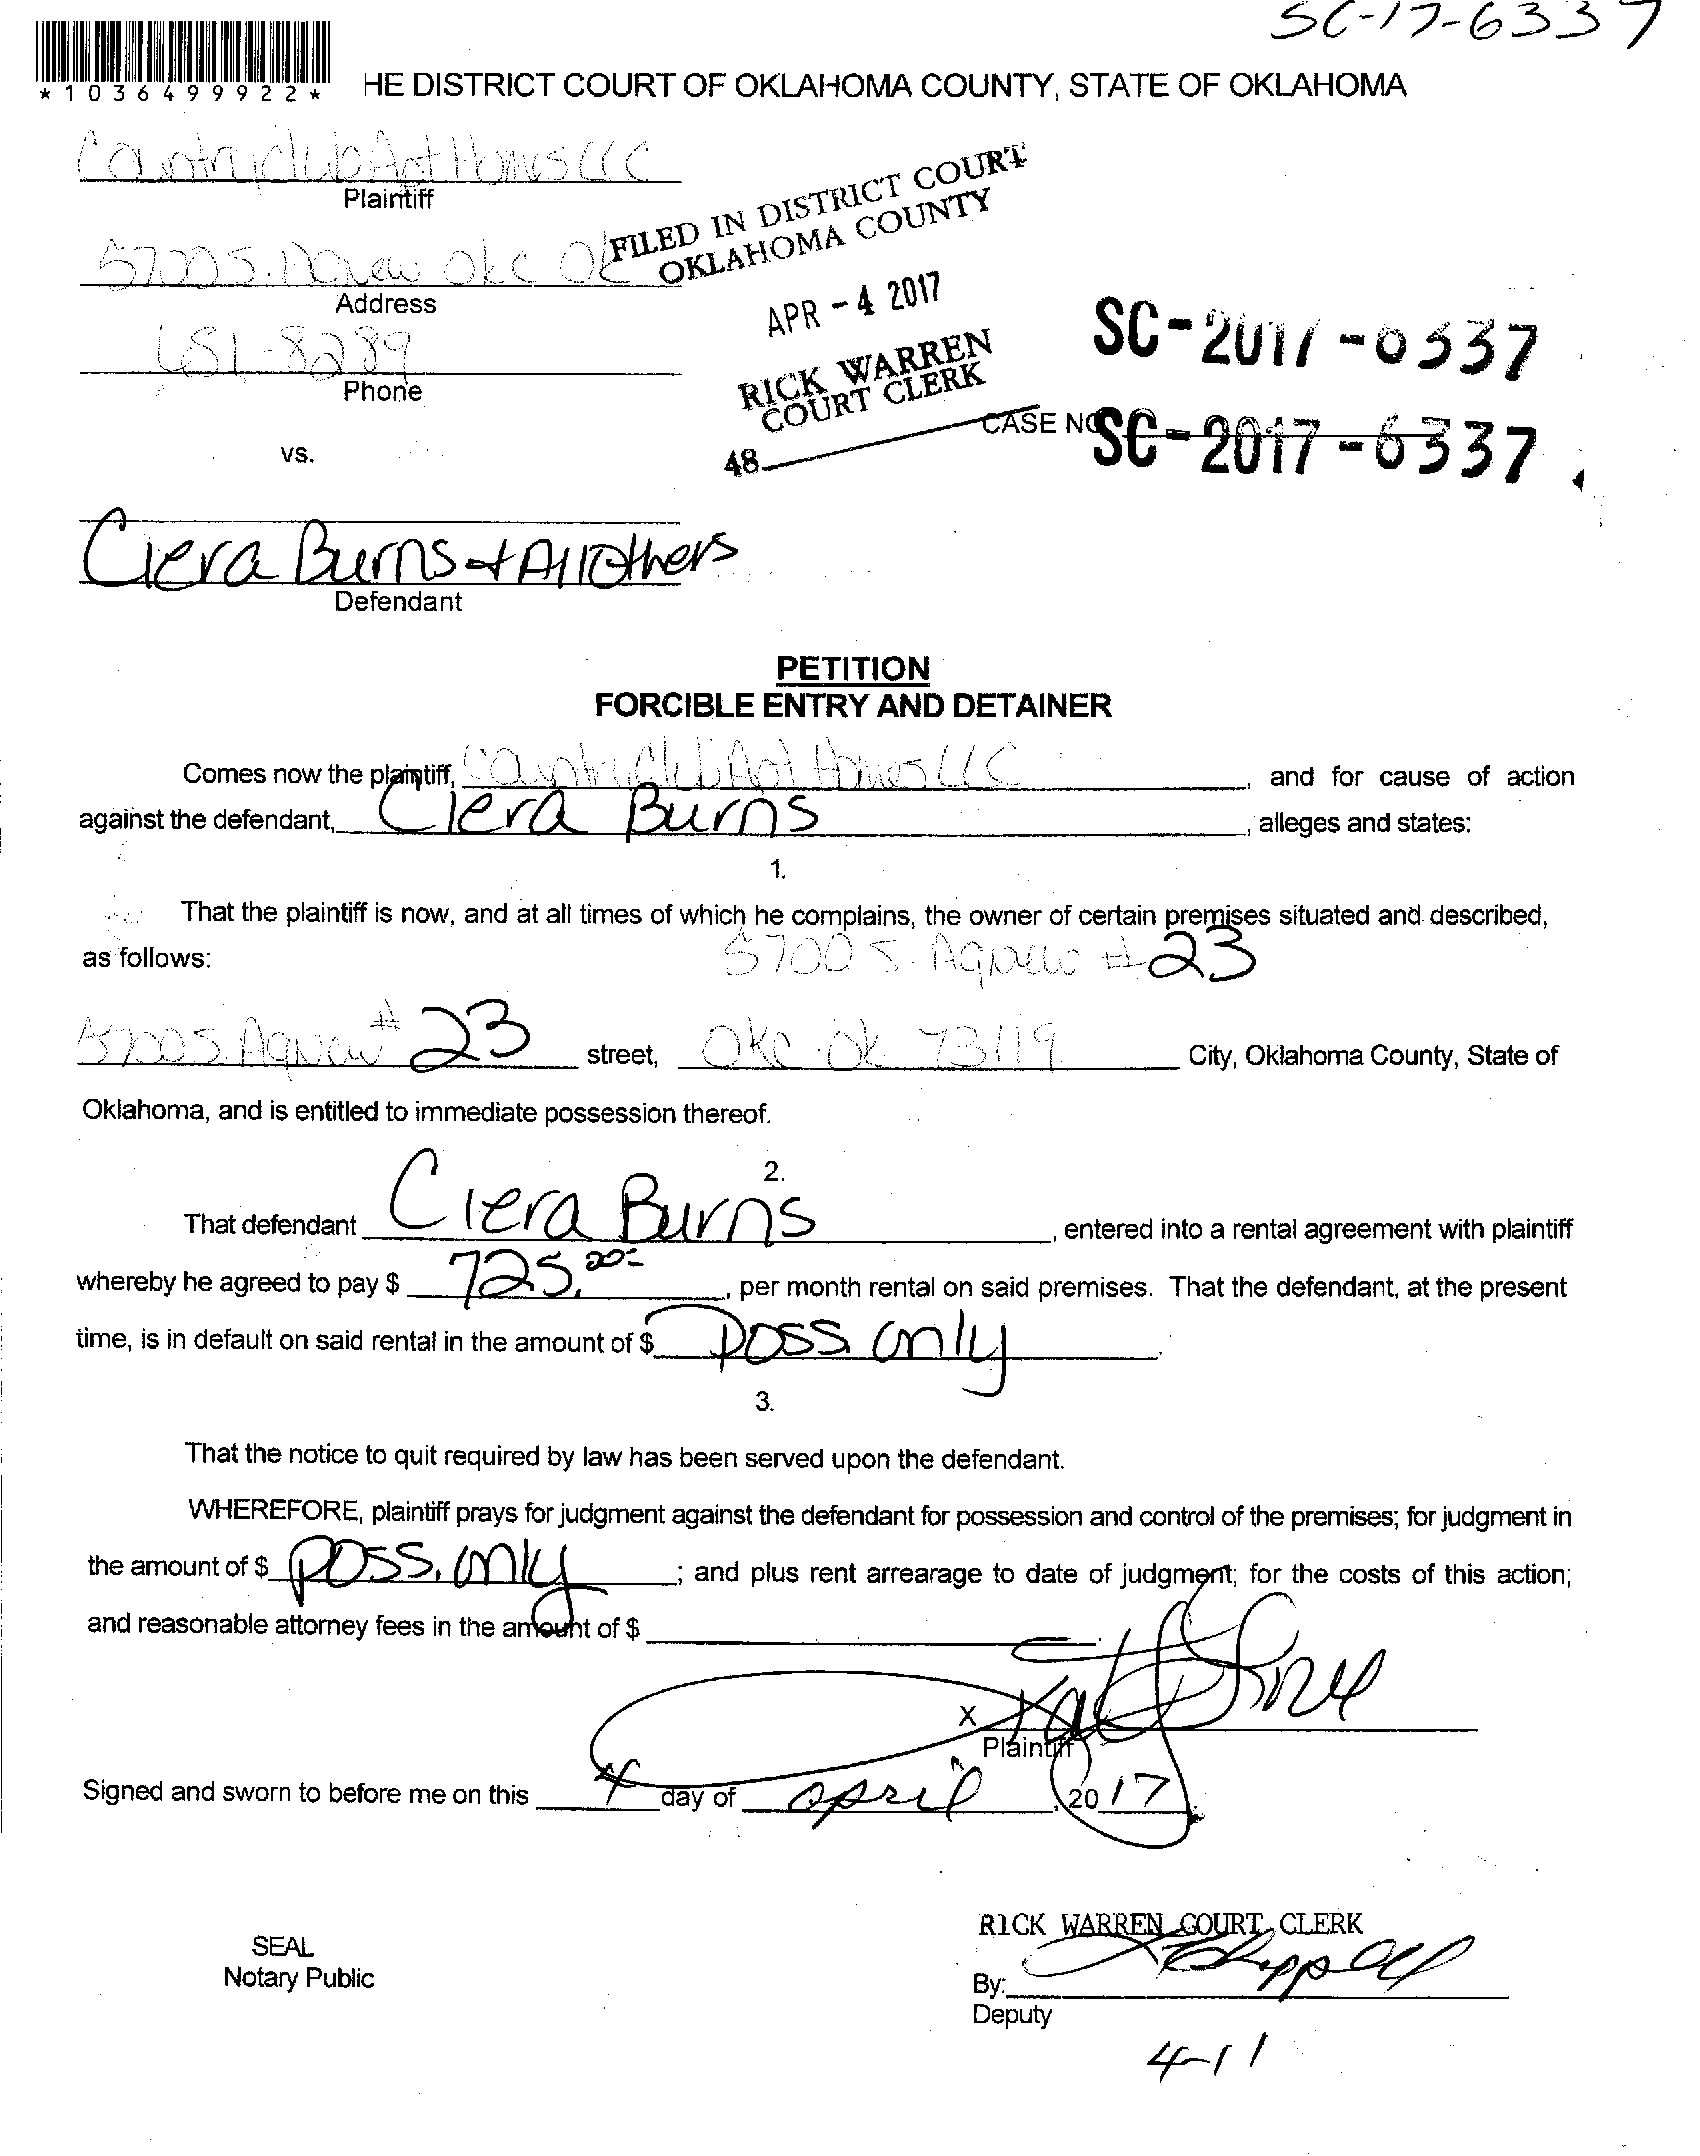 SC-17-6337
*1036499922*
HE DISTRICT COURT OF OKLAHOMA COUNTY, STATE OF OKLAHOMA
Countri club Apt Homes LLC
Plaintiff
FILED IN DISTRICT COURT
OKLAHOMA COUNTY
5700 S. Agnew Okc Ok
Address
APR - 4 2017
SC-2017-6337
651-8289
Phone
RICK WARREN
COURT CLERK
CASE NO SC-2017-6337
48
vs.
Ciera Burns & All Others
Defendant
PETITION
FORCIBLE ENTRY AND DETAINER
Comes now the plaintiff, Countri club Apt Homes LLC, and for cause of action
against the defendant, Ciera Burns, alleges and states:
1.
That the plaintiff is now, and at all times of which he complains, the owner of certain premises situated and described,
as follows: 5700 S. Agnew # 23
5700 S. Agnew # 23 street, Okc Ok 73119 City, Oklahoma County, State of
Oklahoma, and is entitled to immediate possession thereof.
2.
That defendant Ciera Burns, entered into a rental agreement with plaintiff
whereby he agreed to pay $ 725.00, per month rental on said premises. That the defendant, at the present
time, is in default on said rental in the amount of $ Poss. only.
3.
That the notice to quit required by law has been served upon the defendant.
WHEREFORE, plaintiff prays for judgment against the defendant for possession and control of the premises; for judgment in
the amount of $ poss. only; and plus rent arrearage to date of judgment; for the costs of this action;
and reasonable attorney fees in the amount of $
X
Plaintiff
Signed and sworn to before me on this 4 day of april, 2017
RICK WARREN COURT CLERK
SEAL
Notary Public
By:
Deputy
4-11